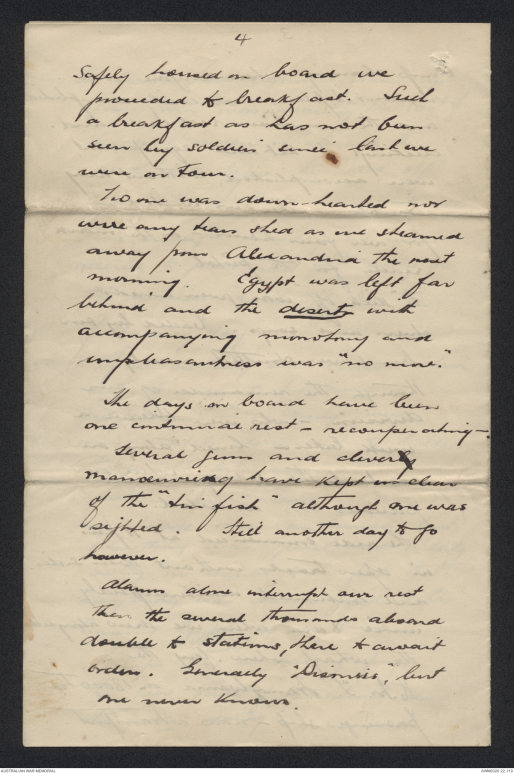 4
Safely housed on board we
proceeded to breakfast. Such
a breakfast as has not been
seen by soldiers since last we
were on tour.
No one was down-hearted nor
were any tears shed as we steamed
away from Alexandria the next
morning. Egypt was left far
behind and the desert, with
accompanying monotony and
unpleasantness was "no more."
The days on board have been
one continual rest - recuperating -
Several guns and clever
manoeuvring have kept us clear
of the "tin fish" although one was
sighted. Still another day to go
however.
Alarms alone interrupt our rest
then the several thousands aboard
double to stations, there to await
orders. Generally "Dismiss", but
one never knows.
AUSTRALIAN WAR MEMORIAL